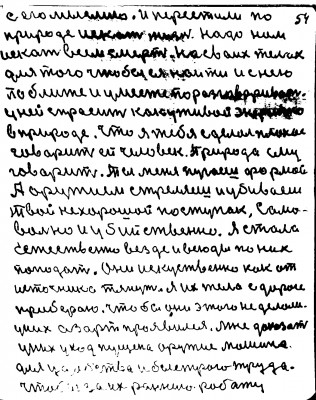 с его мыслию. И нрестили по 54
природе искат там. Надо ним
искат всем смерт. На своих телах
для того чтобы найти и с нею
поближе и уместо разговариват.
у ней спросит как живой
в природе. Что я тебя сделал плохое
говорит ей человек. Природа ему
говорит. Ты меня пугаеш формой
А оружием стрелиш и убиваеш
твой нехороший поступок, Само-
вольно и убийственно. Я стала
естественно везде и всюды по них
попадат. Они искуственно как от
источника тянут. Я их тела с дороги
прибераю. Чтобы они этого не делали
у них азарт проявился. Мне доказат
у них уход пущена оружие машина.
для и быстрого труда.
Чтобы за их раннею работу